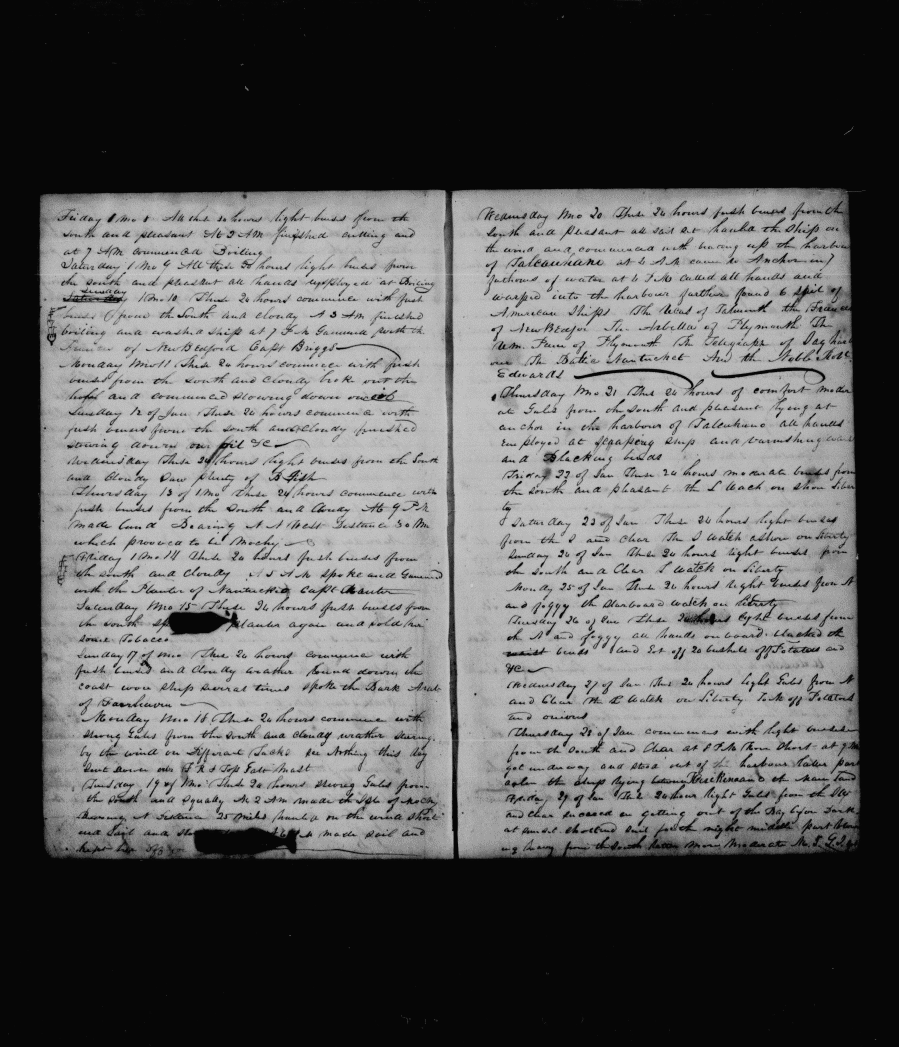 Friday 1 Mo 8 All these 24 hours light breses from the
South and pleasant At 2 AM finished cutting and
at 7 AM commenced Boiling
Saturday 1 Mo 9 All these 24 hours light breses from
the south and pleasant all hands Employed at Boiling
Sunday
Saturday 1 Mo 10 These 24 hours commence with fresh
breses from the South and cloudy A 2 AM finished
boiling and washed ship at 7 P M Gammed with the
of New Bedford Capt Briggs
Monday Mo 11 These 24 hours commence with fresh
breses from the south and cloudy broke out the
hold and commenced stowing down our oil
Tuesday 12 of Jan These 24 hours commence with
fresh breses from the South and cloudy finished
stowing down our oil &c
Wednesday These 24 hours light breses from the South
and Cloudy Saw plenty of B fish
Thursday 13 of 1 Mo These 24 hours commence with
fresh breses from the South and cloudy At 9 P M
made land Bearing N N West Distance 30 Mi
which prooved to be Mocha
Friday 1 Mo 14 These 24 hours fresh breses from
the south and cloudy A 5 A M spoke and Gammed
with the Planter of Nantucket Capt
Saturday Mo 15 These 24 hours fresh breses from
the South Planter again and sold him
some Tobacco
Sunday 17 of Mo These 24 hours commence with
fresh breses and cloudy weather down the
coast wore ship several times spoke the Bark
of Fairhaven
Monday Mo 18 These 24 hours commence with
strong Gales from the South and cloudy weather steering
by the wind on Different Tacks see Nothing this day
Sent down our Top Gall Mast
Tuesday 19 of Mo These 24 hours strong Gales from
the South and Squaly At 2 AM made the Isle of Mocha
Bearing N Distance 25 miles hauled on the wind
and made sail and
kept her
Wednesday Mo 20 These 24 hours fresh breses from the
South and Pleasant all sail set hauld the Ship on
the wind and commenced with up the harbour
of Talcauhane at 4 A M came to Anchor in 7
fathoms of water at 4 P M called all hands and
warped into the harbour further found 6 sail of
American Ships The of Falmouth the Frances
of New Bedfor The Arbella of Plymouth The
Wm of Plymouth The Telegraph of Sag har
The Nantucket And the
Edwards
Thursday Mo 21 These 24 hours of comfort moder
ate Gales from the South and pleasant lying at
anchor in the harbour of Talcahano all hands
Employed at scraping ship and varnishing
and Blacking bends
Friday 22 of Jan These 24 hours moderate breses from
the south and pleasant the L Wach on shore Liber
ty
Saturday 23 of Jan These 24 hours light breses
from the S and Clear the S Watch ashore on liberty
Sunday 24 of Jan These 24 hours light breses from
the South and Clear L Watch on Liberty
Monday 25 of Jan These 24 hours light breses from N
and foggy the Starboard Watch on liberty
Tuesday 26 of Jan These 24 hours light breses from
the N and foggy all hands on board blacked the
bends and Got off 20 bushels of Potatoes and
&c
Wednesday 27 of Jan These 24 hours light Gales from N
and Clear the L Watch on Liberty Took off Potatoes
and onions
Thursday 28 of Jan commences with light breses
from the South and Clear at 5 P M Hove Short at
got underway and stood out of harbour latter part
the ship lying
Friday 29 of Jan These 24 hour light Gales from the
and clear succeed in getting out of the Bay before dark
at sunset shortend sail for the night middle part blow
ing heavy from the South latter more moderate